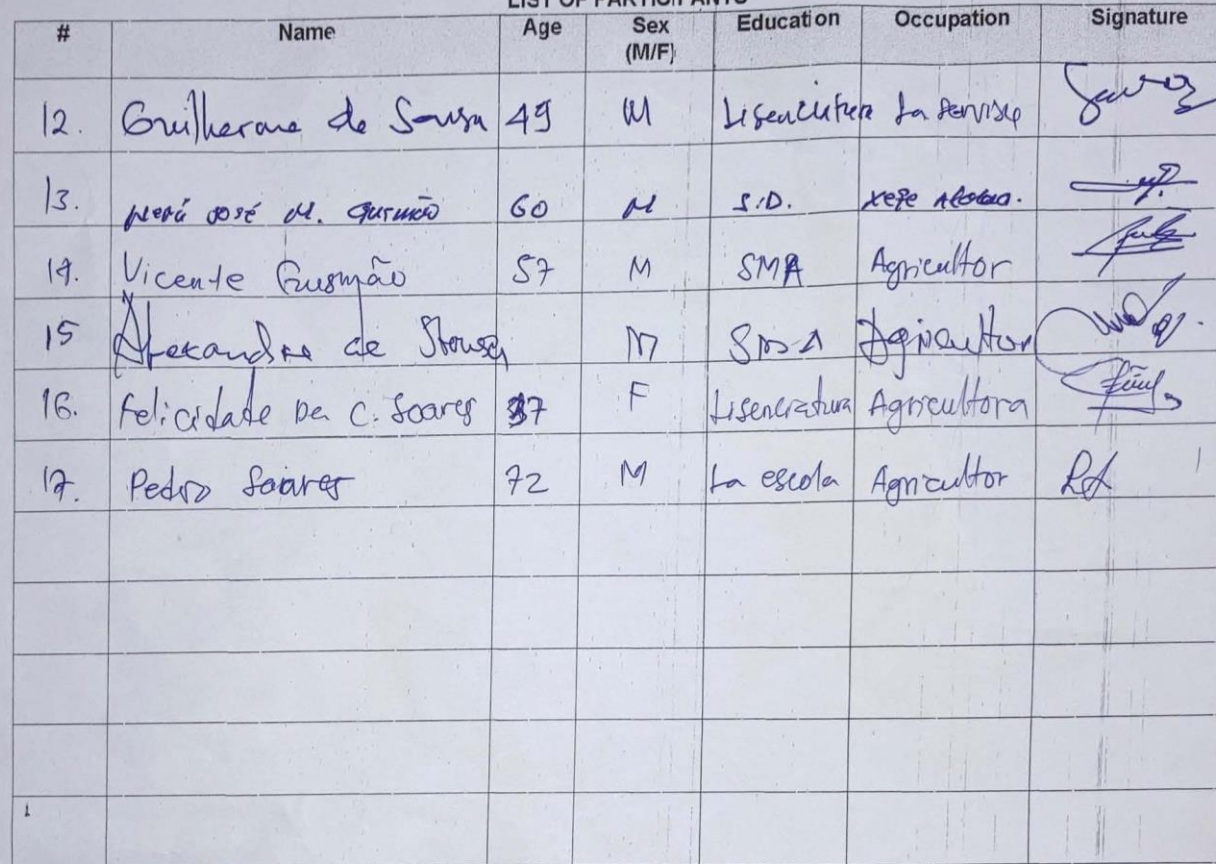 LIST OF PARTICIPANTS
# Name Age Sex (M/F) Education Occupation Signature
12. Guilherme de Sousa 49 M Lisencutura La servisu
13. José M. Gusmão 60 M S.D. xefe
14. Vicente Gusmão 57 M SMA Agricultor
15 Alexandre de M SMA Agricultor
16. Felicidade Da C. Soares 37 F Lisenciatura Agricultora
17. Pedro Soares 72 M La escola Agricultor